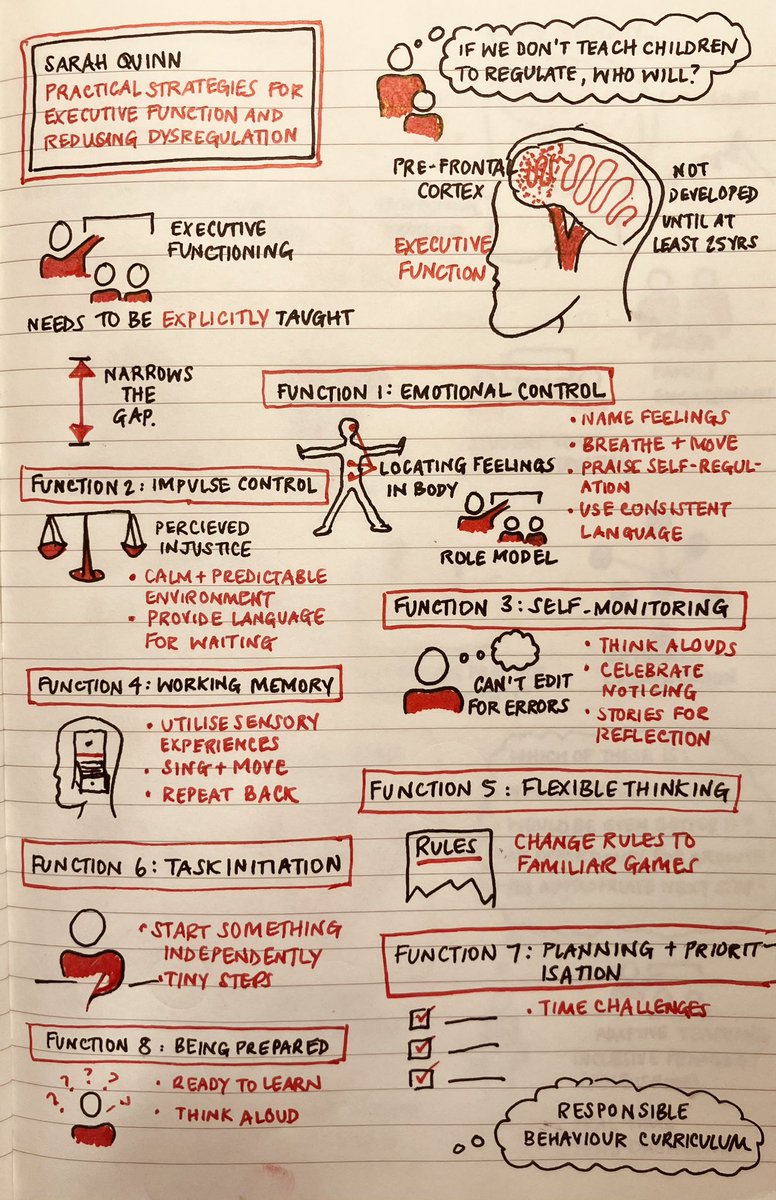 SARAH QUINN
PRACTICAL STRATEGIES FOR
EXECUTIVE FUNCTION AND
REDUSING DYSREGULATION
IF WE DON'T TEACH CHILDREN
TO REGULATE, WHO WILL?
PRE-FRONTAL
CORTEX
EXECUTIVE
FUNCTION
NOT
DEVELOPED
UNTIL AT
LEAST 25YRS
EXECUTIVE
FUNCTIONING
NEEDS TO BE EXPLICITLY TAUGHT
NARROWS
THE
GAP.
FUNCTION 1: EMOTIONAL CONTROL
LOCATING FEELINGS
IN BODY
ROLE MODEL
• NAME FEELINGS
• BREATHE + MOVE
• PRAISE SELF-REGUL-
ATION
• USE CONSISTENT
LANGUAGE
FUNCTION 2: IMPULSE CONTROL
PERCIEVED
INJUSTICE
• CALM + PREDICTABLE
ENVIRONMENT
• PROVIDE LANGUAGE
FOR WAITING
FUNCTION 3: SELF-MONITORING
CAN'T EDIT
FOR ERRORS
• THINK ALOUDS
• CELEBRATE
NOTICING
• STORIES FOR
REFLECTION
FUNCTION 4: WORKING MEMORY
• UTILISE SENSORY
EXPERIENCES
• SING + MOVE
• REPEAT BACK
FUNCTION 5: FLEXIBLE THINKING
RULES
CHANGE RULES TO
FAMILIAR GAMES
FUNCTION 6: TASK INITIATION
• START SOMETHING
INDEPENDENTLY
• TINY STEPS
FUNCTION 7: PLANNING + PRIORIT-
ISATION
• TIME CHALLENGES
FUNCTION 8: BEING PREPARED
? ? ? ?
• READY TO LEARN
• THINK ALOUD
RESPONSIBLE
BEHAVIOUR CURRICULUM